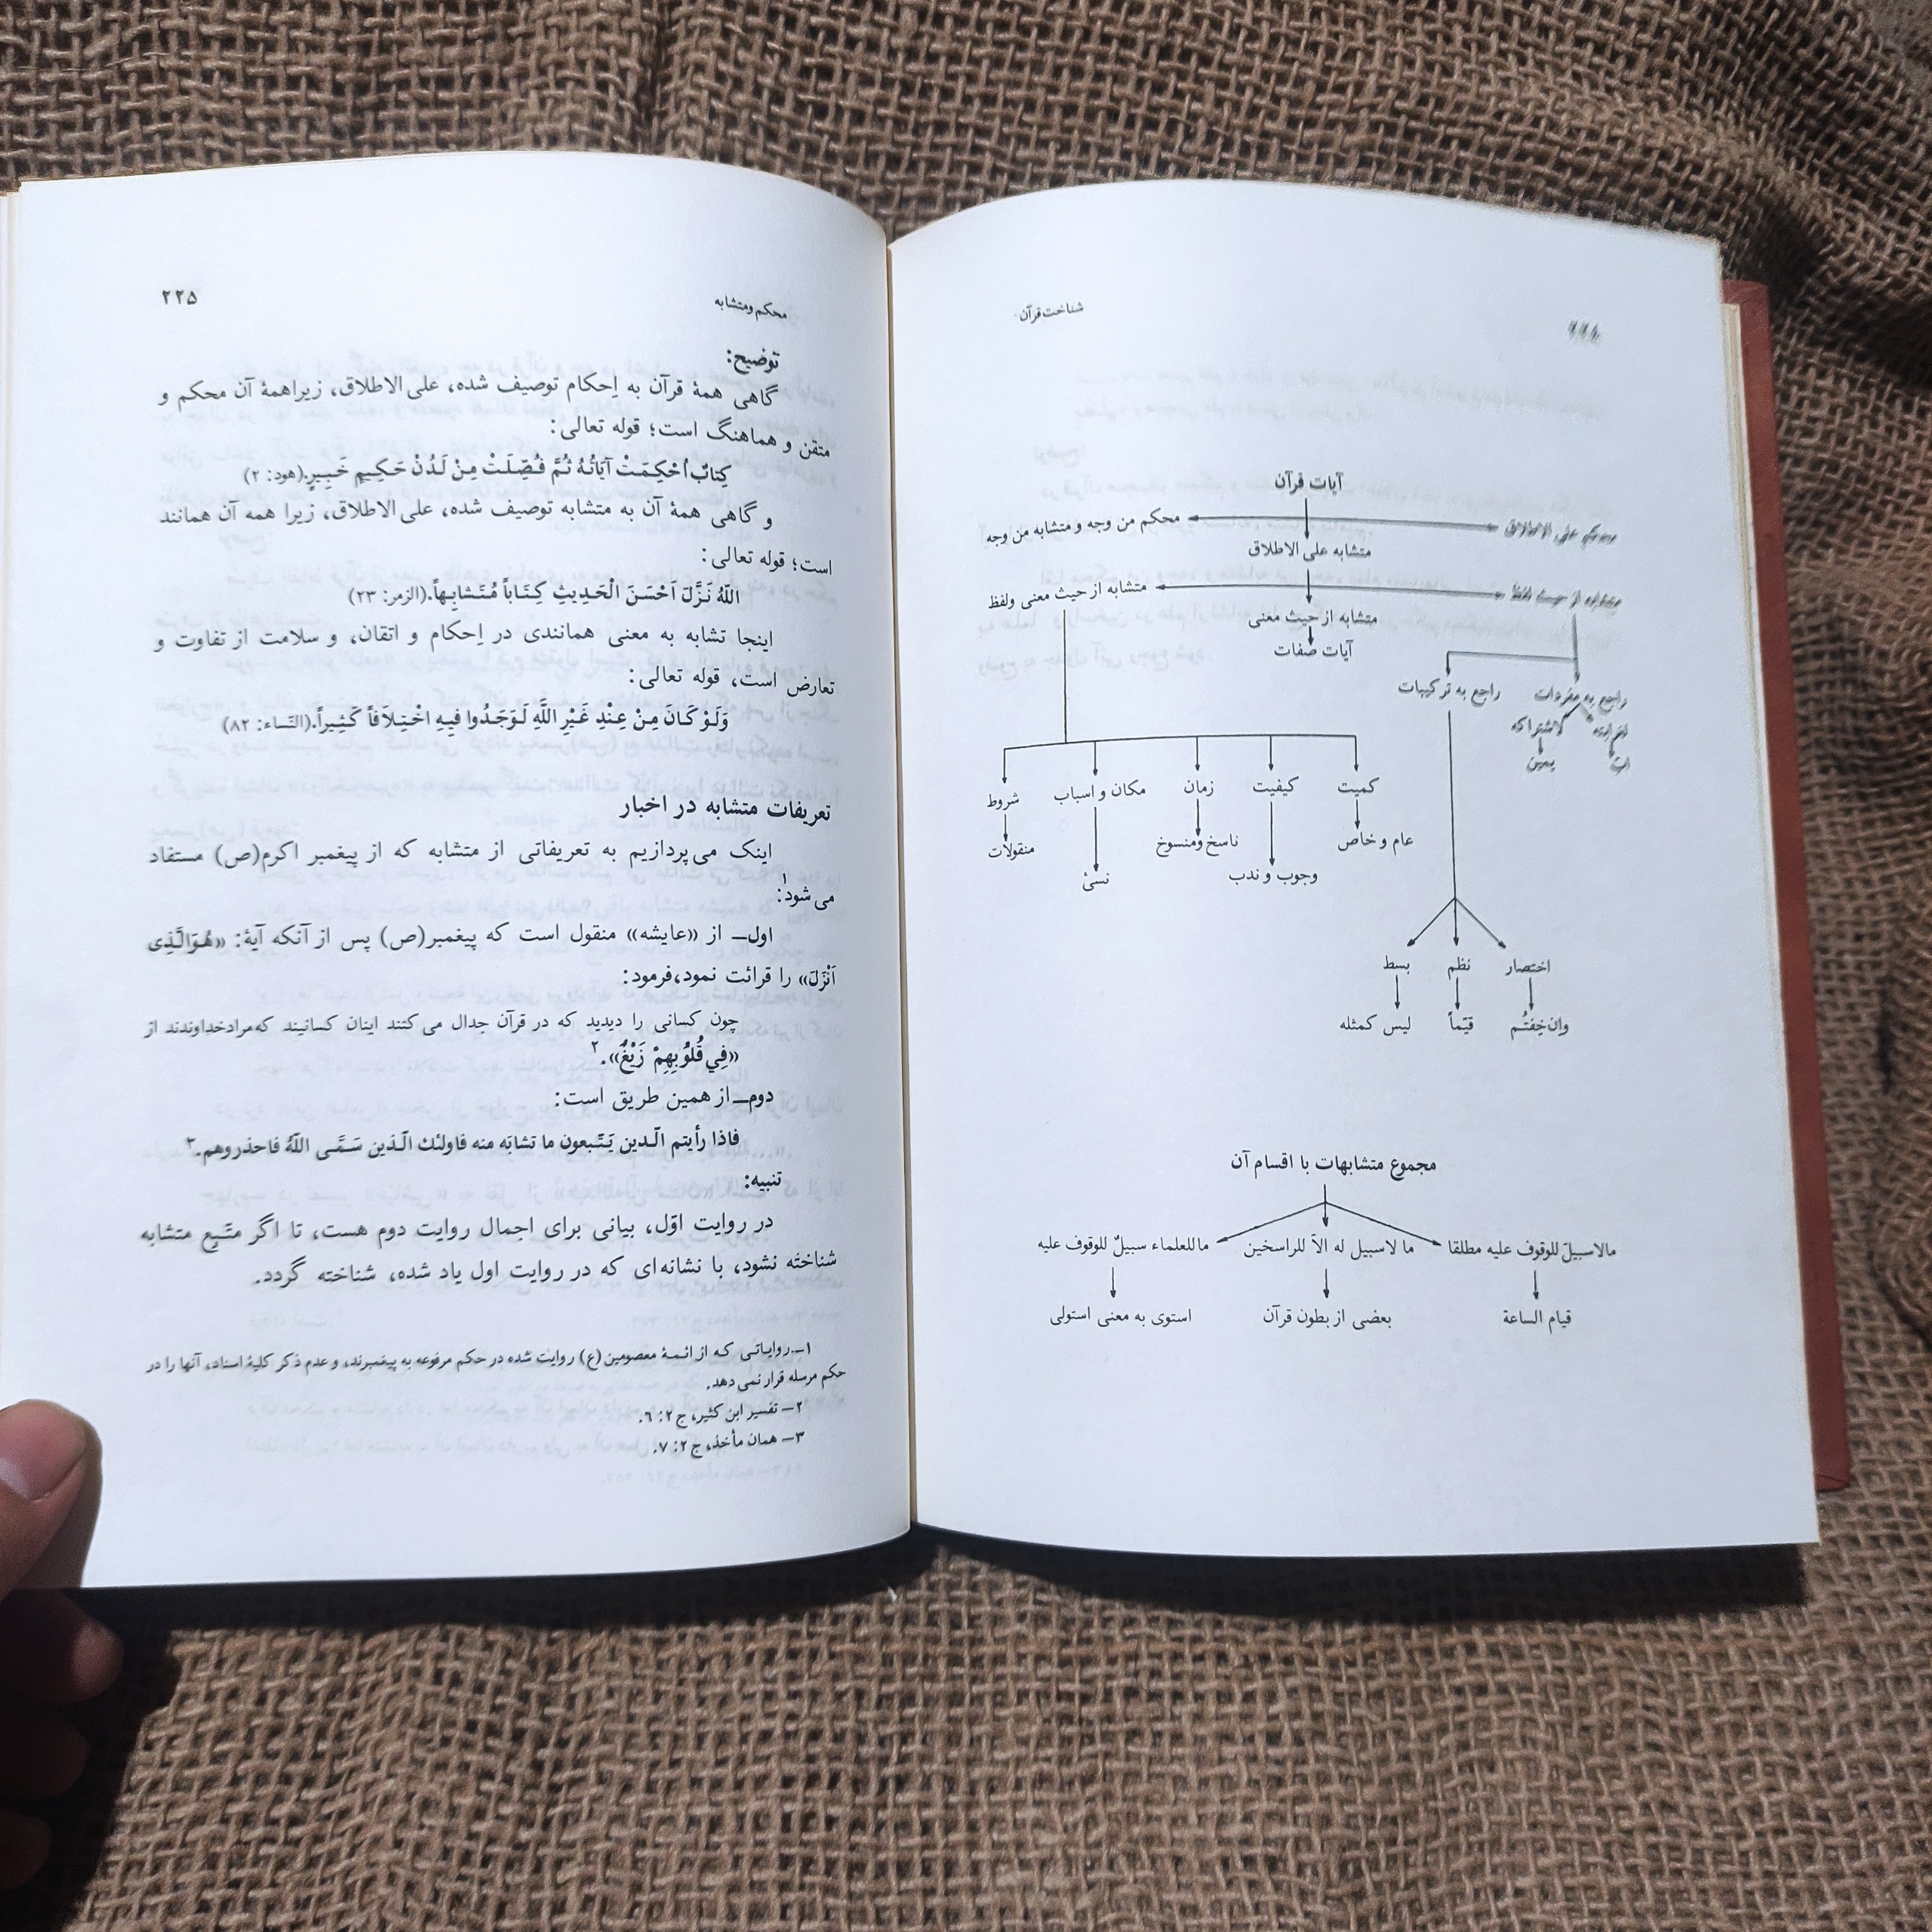 شناخت قرآن
آیات قرآن
محکم علی الاطلاق
محکم من وجه و متشابه من وجه
متشابه علی الاطلاق
متشابه از حیث لفظ
متشابه از حیث معنی ولفظ
متشابه از حیث معنی
آیات صفات
راجع به مفردات
راجع به ترکیبات
کمیت
کیفیت
زمان
مکان و اسباب
شروط
عام و خاص
ناسخ ومنسوخ
منقولات
وجوب و ندب
نسئ
اختصار
نظم
بسط
وان خِفتُم
قیّماً
لیس کمثله
مجموع متشابهات با اقسام آن
مالاسبیلَ للوقوف علیه مطلقا
ما لاسبیل له الاّ للراسخین
ماللعلماء سبیلٌ للوقوف علیه
قیام الساعة
بعضی از بطون قرآن
استوی به معنی استولی
محکم ومتشابه
۲۲۵
توضیح:
گاهی همهٔ قرآن به اِحکام توصیف شده، علی الاطلاق، زیراهمهٔ آن محکم و
متقن و هماهنگ است؛ قوله تعالی:
کِتابٌ اُحْکِمَتْ آیَاتُهُ ثُمَّ فُصِّلَتْ مِنْ لَدُنْ حَکِیمٍ خَبِیرٍ.(هود: ۲)
و گاهی همهٔ آن به متشابه توصیف شده، علی الاطلاق، زیرا همه آن همانند
است؛ قوله تعالی:
اَللّٰهُ نَزَّلَ اَحْسَنَ الْحَدِیثِ کِتَاباً مُتَشابِهاً.(الزمر: ۲۳)
اینجا تشابه به معنی همانندی در اِحکام و اتقان، و سلامت از تفاوت و
تعارض است، قوله تعالی:
وَلَوْ کَانَ مِنْ عِنْدِ غَیْرِ اللّٰهِ لَوَجَدُوا فِیهِ اخْتِلَافاً کَثِیراً.(النّساء: ۸۲)
تعریفات متشابه در اخبار
اینک می‌پردازیم به تعریفاتی از متشابه که از پیغمبر اکرم(ص) مستفاد
می‌شود۱:
اول— از «عایشه» منقول است که پیغمبر(ص) پس از آنکه آیهٔ: «هُوَالَّذِی
اَنْزَلَ» را قرائت نمود،فرمود:
چون کسانی را دیدید که در قرآن جدال می کنند اینان کسانیند که‌مرادخداوندند از
«فِي قُلُوبِهِمْ زَیْغٌ».۲
دوم— از همین طریق است:
فاذا رأیتم الّذین یَتّبعون ما تشابَه منه فاولئك الّذین سَمَّی اللّٰهُ فاحذروهم.۳
تنبیه:
در روایت اوّل، بیانی برای اجمال روایت دوم هست، تا اگر متّبِع متشابه
شناخته نشود، با نشانه‌ای که در روایت اول یاد شده، شناخته گردد.
۱—روایاتی که از ائمهٔ معصومین(ع) روایت شده در حکم مرفوعه به پیغمبرند، و عدم ذکر کلیهٔ اسناد، آنها را در
حکم مرسله قرار نمی دهد.
۲— تفسیر ابن کثیر، ج ۲: ۶.
۳— همان مأخذ، ج ۲: ۷.